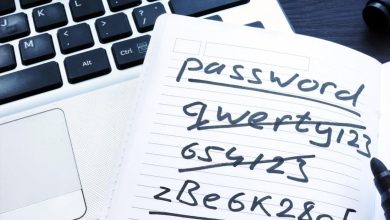 Alt
Ctrl
password
qwerty123
654123
zBe6K28